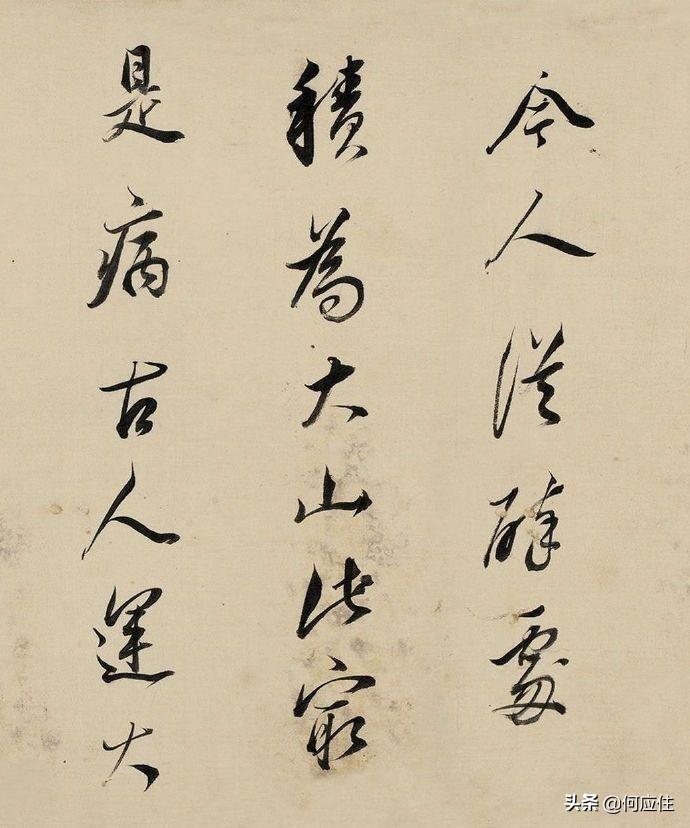 今人從碎處
積為大山此最
是病古人運大
头条 @何应住